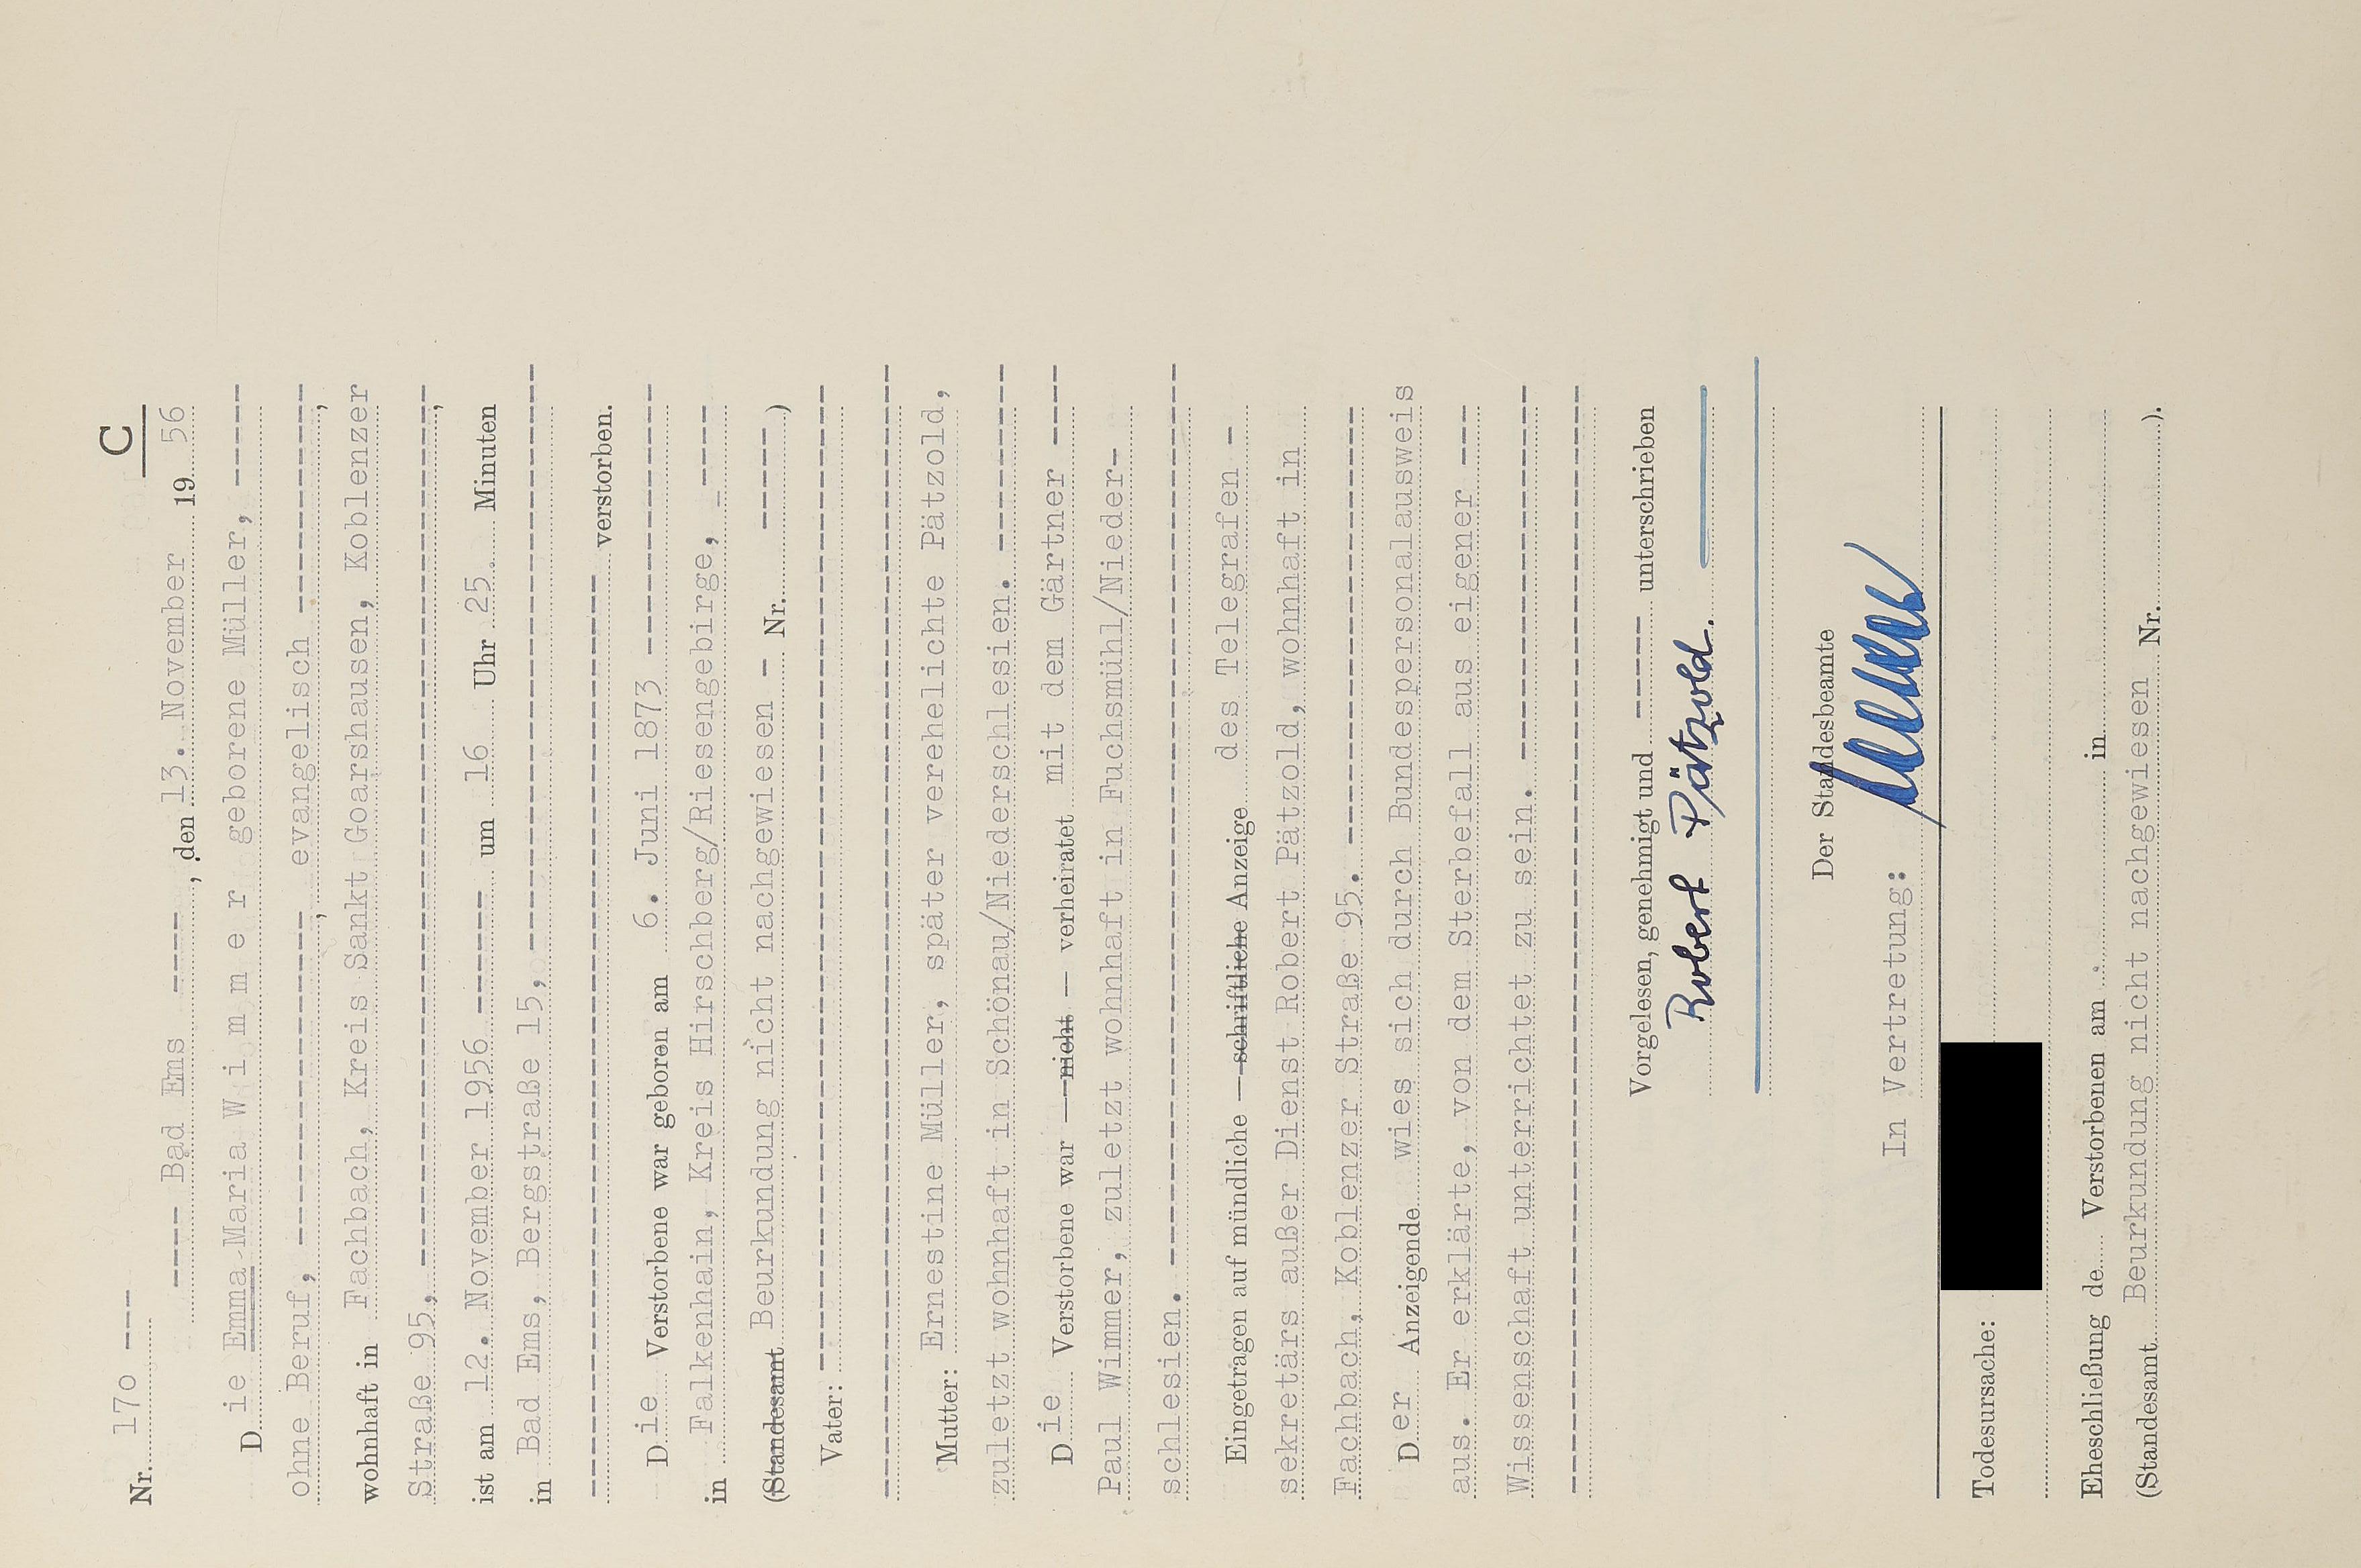 C
Nr. 17o ----
----- Bad Ems -----, den 13. November 19 56
Die Emma Maria W i m m e r geborene Müller, -----
ohne Beruf, --------------------, evangelisch ------------,
wohnhaft in Fachbach, Kreis Sankt Goarshausen, Koblenzer
Straße 95, ------------------------------------------------,
ist am 12. November 1956 ------- um 16 Uhr 25 Minuten
in Bad Ems, Bergstraße 15, --------------------------------
------------------------------------------------ verstorben.
Die Verstorbene war geboren am 6. Juni 1873 --------------
in Falkenhain, Kreis Hirschberg/Riesengebirge, -----
(Standesamt Beurkundung nicht nachgewiesen - Nr. ------)
Vater: ----------------------------------------------------
------------------------------------------------------------
Mutter: Ernestine Müller, später verehelichte Pätzold,
zuletzt wohnhaft in Schönau/Niederschlesien. ----------
Die Verstorbene war — nicht — verheiratet mit dem Gärtner ----
Paul Wimmer, zuletzt wohnhaft in Fuchsmühl/Nieder-
schlesien. ------------------------------------------------
Eingetragen auf mündliche — schriftliche Anzeige des Telegrafen -
sekretärs außer Dienst Robert Pätzold, wohnhaft in
Fachbach, Koblenzer Straße 95. ---------------------------
Der Anzeigende wies sich durch Bundespersonalausweis
aus. Er erklärte, von dem Sterbefall aus eigener ---
Wissenschaft unterrichtet zu sein. ---------------------
------------------------------------------------------------
Vorgelesen, genehmigt und ------ unterschrieben
Robert Pätzold.
Der Standesbeamte
In Vertretung:
Todesursache:
Eheschließung de Verstorbenen am in
(Standesamt Beurkundung nicht nachgewiesen Nr. ).